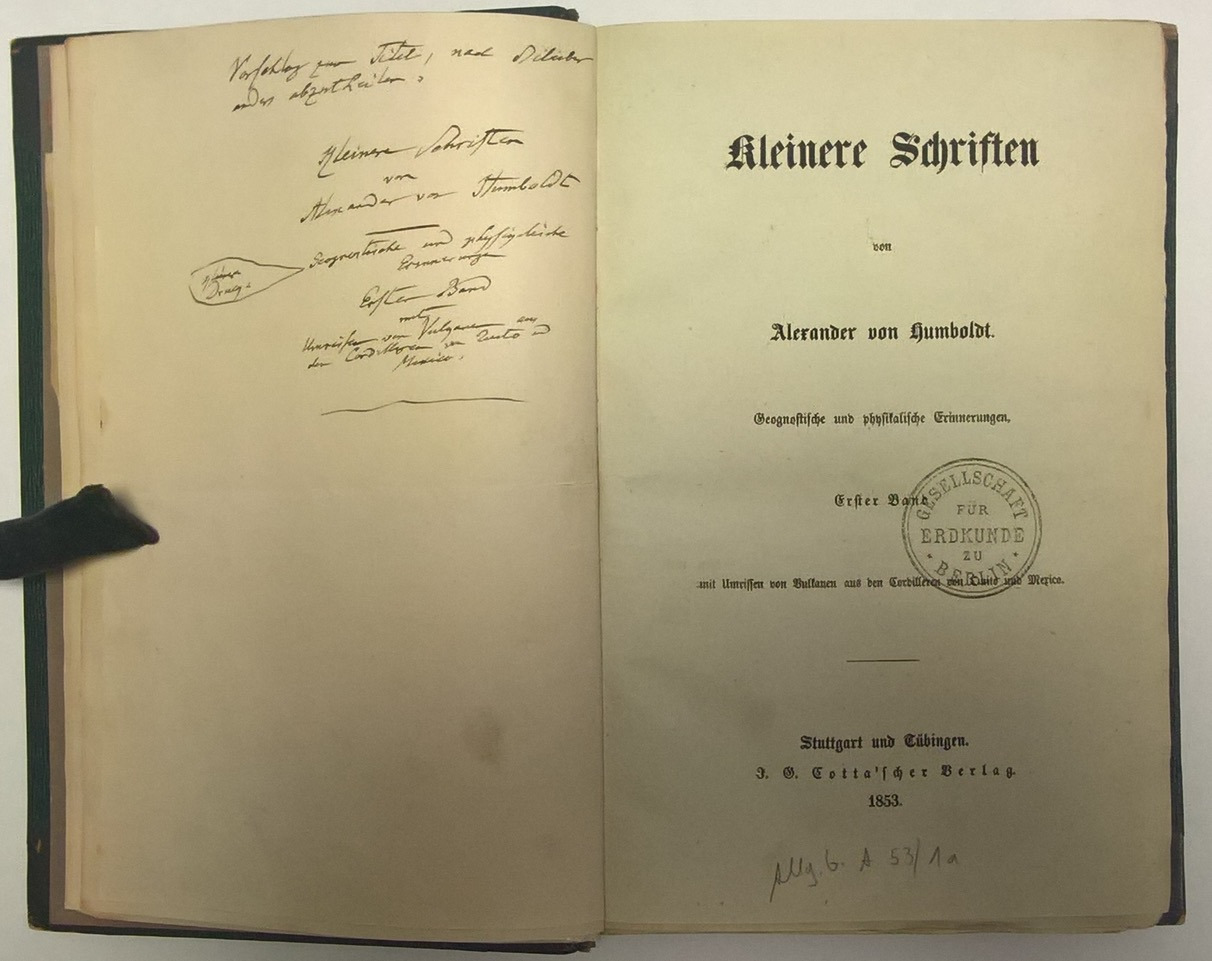 Vorschlag zum Titel, nach Belieben
anders abzutheilen:
Kleinere Schriften
von
Alexander von Humboldt
Geognostische und physikalische
Erinnerungen
kleiner
Erster Band
mit
Umrissen von Vulkanen aus
den Cordilleren von Quito und
Mexico.
Kleinere Schriften
von
Alexander von Humboldt.
Geognostische und physikalische Erinnerungen.
Erster Band
GESELLSCHAFT
FÜR
ERDKUNDE
ZU
BERLIN
mit Umrissen von Vulkanen aus den Cordilleren von Quito und Mexico.
Stuttgart und Tübingen.
J. G. Cotta'scher Verlag.
1853.
Allg. b. A 53/1a